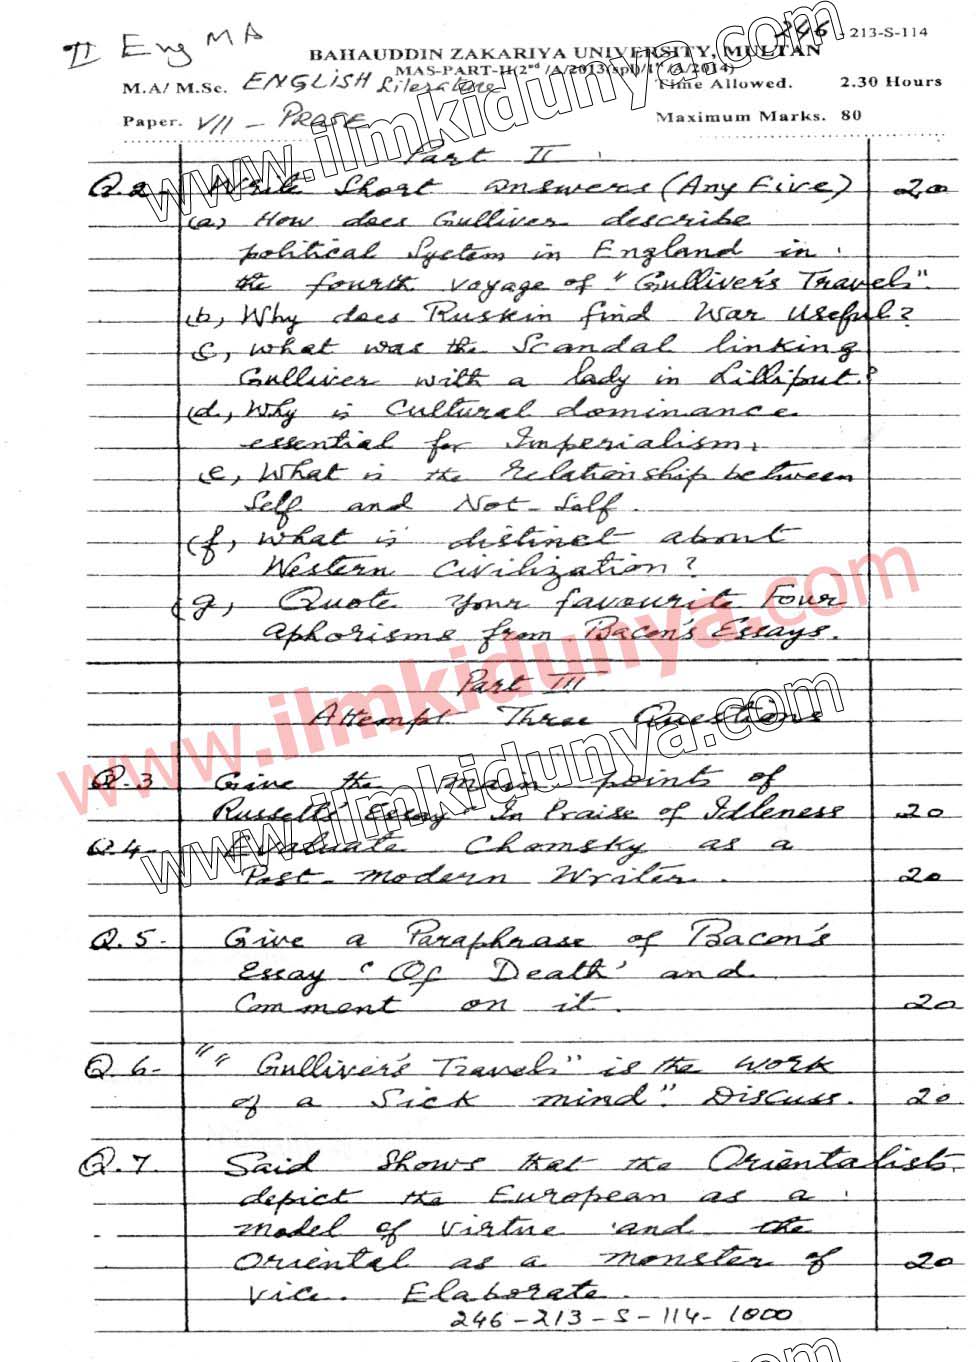 II Eng MA
246 213-S-114
BAHAUDDIN ZAKARIYA UNIVERSITY, MULTAN
MAS-PART-II(2nd /A/2013(spl)/1st /A/2014)
M.A/ M.Sc. ENGLISH Literature Time Allowed. 2.30 Hours
Paper. VII - PROSE Maximum Marks. 80
Part II
Q.2- Write Short answers (Any Five) 20
(a) How does Gulliver describe
political System in England in
the fourth voyage of "Gulliver's Travels".
(b) Why does Ruskin find War useful?
(c) What was the Scandal linking
Gulliver with a lady in Lilliput?
(d) Why is Cultural dominance
essential for Imperialism.
(e) What is the Relationship between
Self and Not-Self.
(f) What is distinct about
Western Civilization?
(g) Quote your favourite Four
Aphorisms from Bacon's Essays.
Part III
Attempt Three Questions
Q.3 Give the main points of
Russell's Essay "In Praise of Idleness 20
Q.4- Evaluate Chomsky as a
Post-modern Writer. 20
Q.5- Give a Paraphrase of Bacon's
Essay 'Of Death' and
Comment on it. 20
Q.6- "" Gulliver's Travels" is the work
of a Sick mind". Discuss. 20
Q.7. Said Shows that the Orientalists
depict the European as a
model of virtue and the
Oriental as a monster of 20
vice. Elaborate.
246-213-S-114-1000
www.ilmkidunya.com
www.ilmkidunya.com
www.ilmkidunya.com